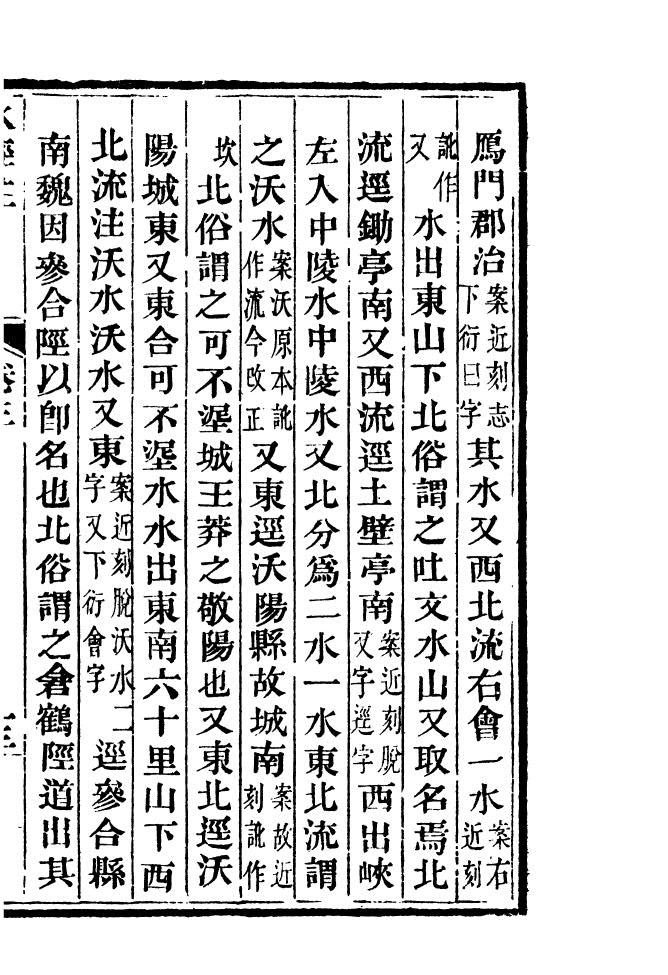 鴈門郡治案近刻志下衍曰字其水又西北流右會一水案右近刻
訛作又水出東山下北俗謂之吐文水山又取名焉北
流逕鋤亭南又西流逕土壁亭南案近刻脫又字逕字西出峽
左入中陵水中陵水又北分爲二水一水東北流謂
之沃水案沃原本訛作流今改正又東逕沃陽縣故城南案故近刻訛作
坎北俗謂之可不埿城王莽之敬陽也又東北逕沃
陽城東又東合可不埿水水出東南六十里山下西
北流注沃水沃水又東案近刻脫沃水二字又下衍會字逕參合縣
南魏因參合陘以卽名也北俗謂之倉鶴陘道出其
水經注 卷三